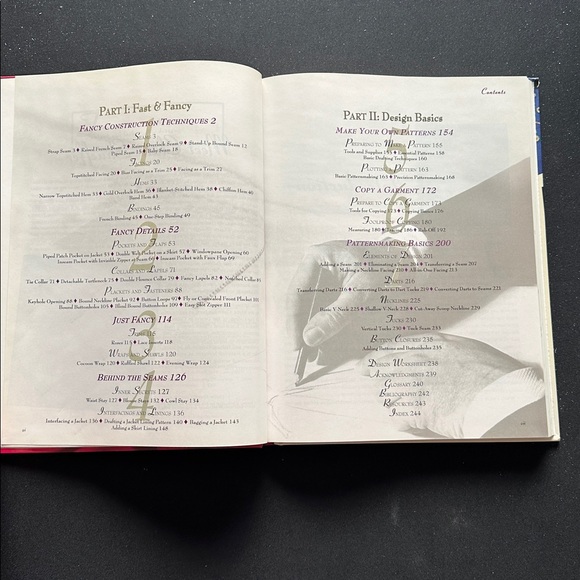 PART I: Fast & Fancy
FANCY CONSTRUCTION TECHNIQUES 2
SEAMS 3
Strap Seam 5 ♦ Raised French Seam 7 ♦ Raised Overlock Seam 9 ♦ Stand-Up Bound Seam 12
Piped Seam 15 ♦ Baby Seam 18
20
Topstitched Facing 20 ♦ Bias Facing as a Trim 25 ♦ Facing as a Trim 27
HEMS 33
Narrow Topstitched Hem 33 ♦ Gold Overlock Hem 36 ♦ Blanket-Stitched Hem 38 ♦ Chiffon Hem 40
Band Hem 43
BINDINGS 45
French Binding 45 ♦ One-Step Binding 49
FANCY DETAILS 52
POCKETS AND FLAPS 53
Piped Patch Pocket on Jacket 53 ♦ Double Welt Pocket on a Skirt 57 ♦ Windowpane Opening 60
Inseam Pocket with Invisible Zipper at Seam 66 ♦ Inseam Pocket with Faux Flap 69
COLLARS AND LAPELS 71
Tie Collar 71 ♦ Detachable Turtleneck 75 ♦ Double Florence Collar 79 ♦ Fancy Lapels 82 ♦ Notched Collar
PLACKETS AND FASTENERS 88
Keyhole Opening 88 ♦ Bound Neckline Placket 92 ♦ Button Loops 97 ♦ Fly or Controlled Front Placket
Bound Buttonholes 105 ♦ Blind Bound Buttonholes 109 ♦ Easy Skirt Zipper 111
JUST FANCY 114
TRIMS 115
Roses 115 ♦ Lace Inserts 118
120
Cocoon Wrap 120 ♦ Ruffled Shawl 122 ♦ Evening Wrap 124
BEHIND THE SEAMS 126
INNER SECRETS 127
Waist Stay 127 ♦ Blouse Stays 132 ♦ Cowl Stay 134
INTERFACINGS AND LININGS 136
Interfacing a Jacket 136 ♦ Drafting a Jacket Lining Pattern 140 ♦ Bagging a Jacket 143
Adding a Skirt Lining 148
Contents
PART II: Design Basics
MAKE YOUR OWN PATTERNS 154
PREPARING TO MAKE A PATTERN 155
Tools and Supplies 155 ♦ Essential Patterns 158
Basic Drafting Techniques 160
PLOTTING A PATTERN 163
Basic Patternmaking 163 ♦ Precision Patternmaking 168
COPY A GARMENT 172
PREPARE TO COPY A GARMENT 173
Tools for Copying 173 ♦ Copying Basics 176
FOOLPROOF COPYING 180
Measuring 180 ♦ 186 ♦ Rub-Off 192
PATTERNMAKING BASICS 200
ELEMENTS OF DESIGN 201
Adding a Seam 201 ♦ Eliminating a Seam 204 ♦ Transferring a Seam 207
Making a Neckline Facing 210 ♦ All-in-One Facing 213
DARTS 216
Transferring Darts 216 ♦ Converting Darts to Style Darts 219 ♦ Converting Darts to Seams 221
NECKLINES 225
Basic V-Neck 225 ♦ Shallow V-Neck 228 ♦ Cut-Away Scoop Neckline 229
TUCKS 230
Vertical Tucks 230 ♦ Tuck Seams 233
BUTTON CLOSURES 235
Adding Buttons and Buttonholes 235
DESIGN WORKSHEET 238
ACKNOWLEDGMENTS 239
GLOSSARY 240
BIBLIOGRAPHY 242
RESOURCES 243
INDEX 244